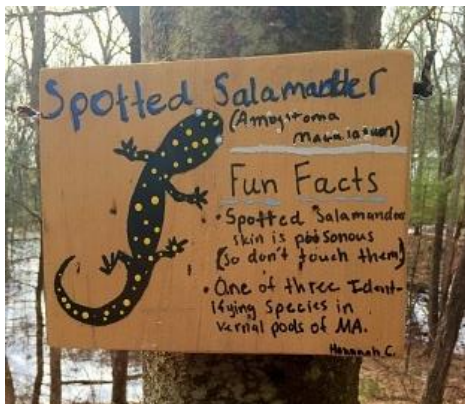 Spotted Salamander
(Ambystoma
Maculatum)
Fun Facts
• Spotted Salamander
skin is poisonous
(so don't touch them)
• One of three Ident-
ifying species in
vernal pools of MA.
Hannah C.